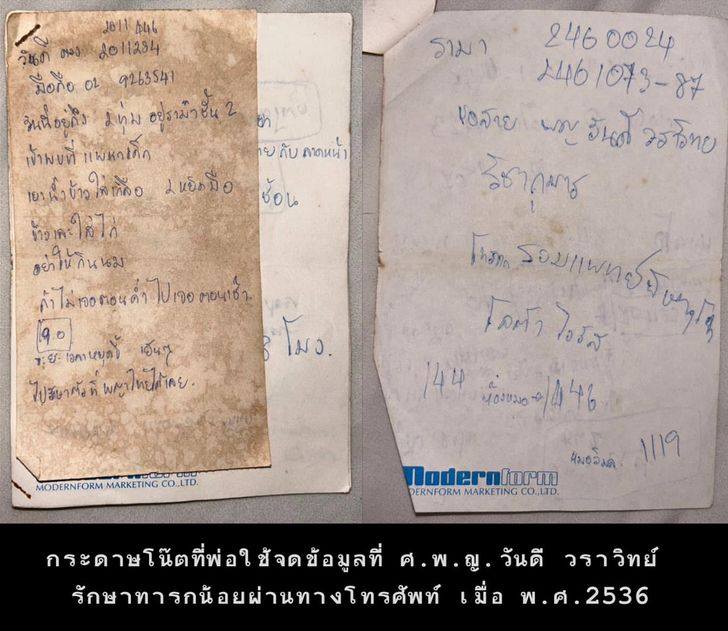 2011446
วันดี ตรง 2011234
มือถือ 02 9263541
วันนี้อยู่ถึง 2 ทุ่ม อยู่รามาชั้น 2
เข้าพบที่แผนกเด็ก
เอาน้ำข้าวใส่เกลือ 2 หยิบมือ
ข้าวเละใส่ไก่
อย่าให้กินนม
ถ้าไม่เจอตอนค่ำไปเจอตอนเช้า
9.0
ไปรักษาตัวที่พญาไทได้เลย
กับลาดหน้า
ช้อน
โมง.
MODERNFORM MARKETING CO.,LTD.
รามา 2460024
2461073-87
ขอสาย พญ วันดี วราวิทย
วิชากุมาร
โรต้า ไวรัส
144 ห้องหมอ → 1446
1119
Modernform
ODERNFORM MARKETING CO.,LTD.
กระดาษโน๊ตที่พ่อใช้จดข้อมูลที่ ศ.พ.ญ.วันดี วราวิทย์
รักษาทารกน้อยผ่านทางโทรศัพท์ เมื่อ พ.ศ.2536